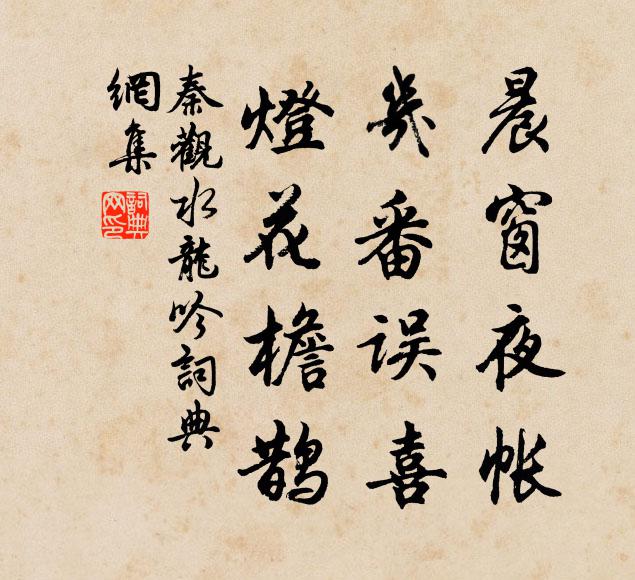 晨窗夜帐
幾番误喜
燈花檐鹊
秦觀水龍吟詞典
網集
詞典
网印